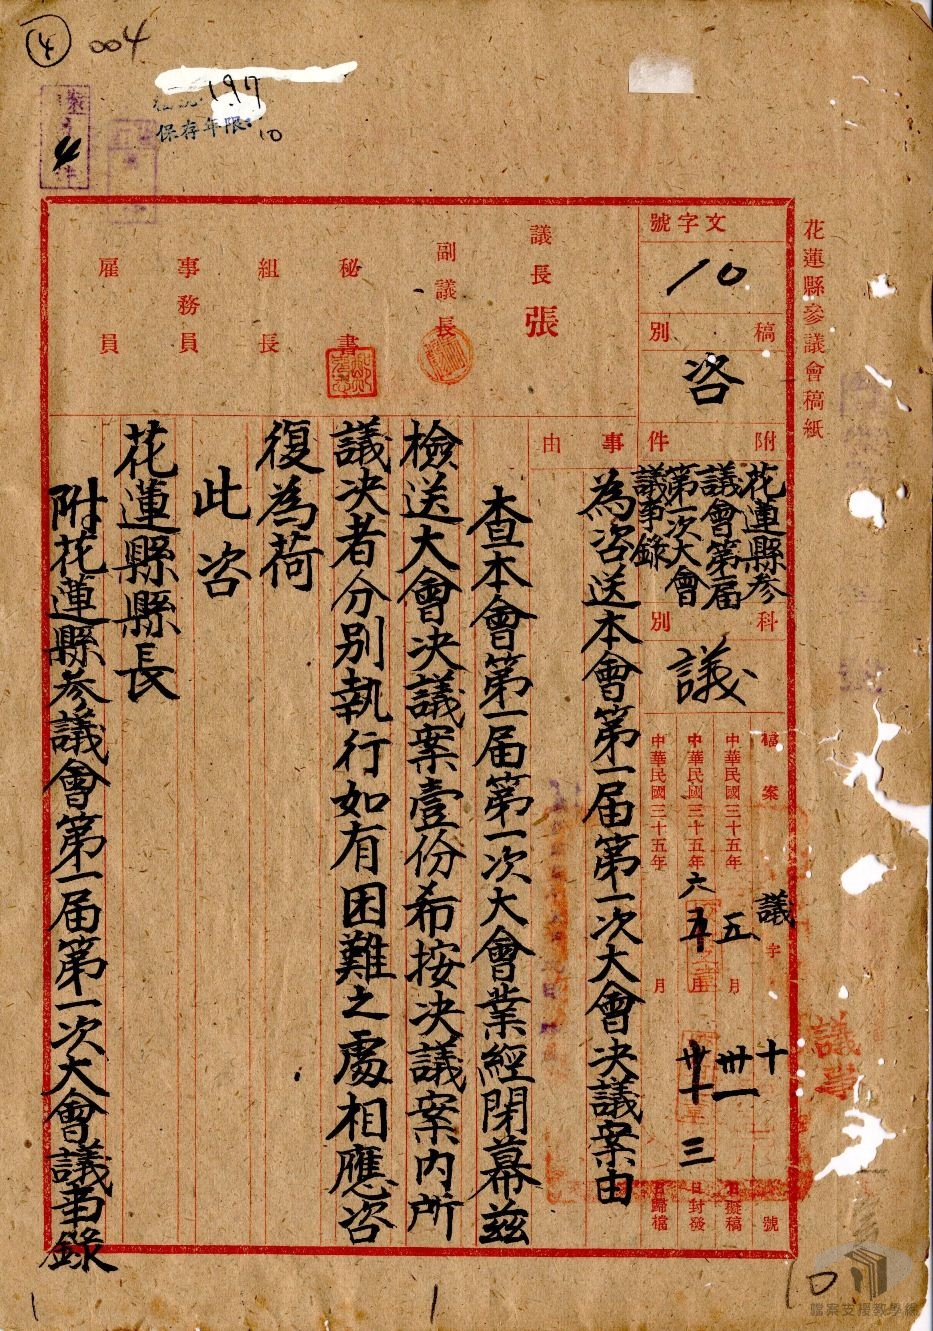 ④ 004
197
保存年限：10
4
花蓮縣參議會稿紙
文字號
10
稿別
咨
附件
花蓮縣參
議會第一屆
第一次大會
議事錄
科別
議
檔案 議字 十 號
中華民國三十五年 五 月 卅一 日擬稿
中華民國三十五年 六 月 三 日封發
中華民國三十五年 月 日歸檔
議長 張
副議長
秘書
組長
事務員
雇員
事由
為咨送本會第一屆第一次大會決議案由
查本會第一屆第一次大會業經閉幕茲
檢送大會決議案壹份希按決議案內所
議決者分別執行如有困難之處相應咨
復為荷
此咨
花蓮縣縣長
附花蓮縣參議會第一屆第一次大會議事錄
議事
1
1
10
檔案支援教學網